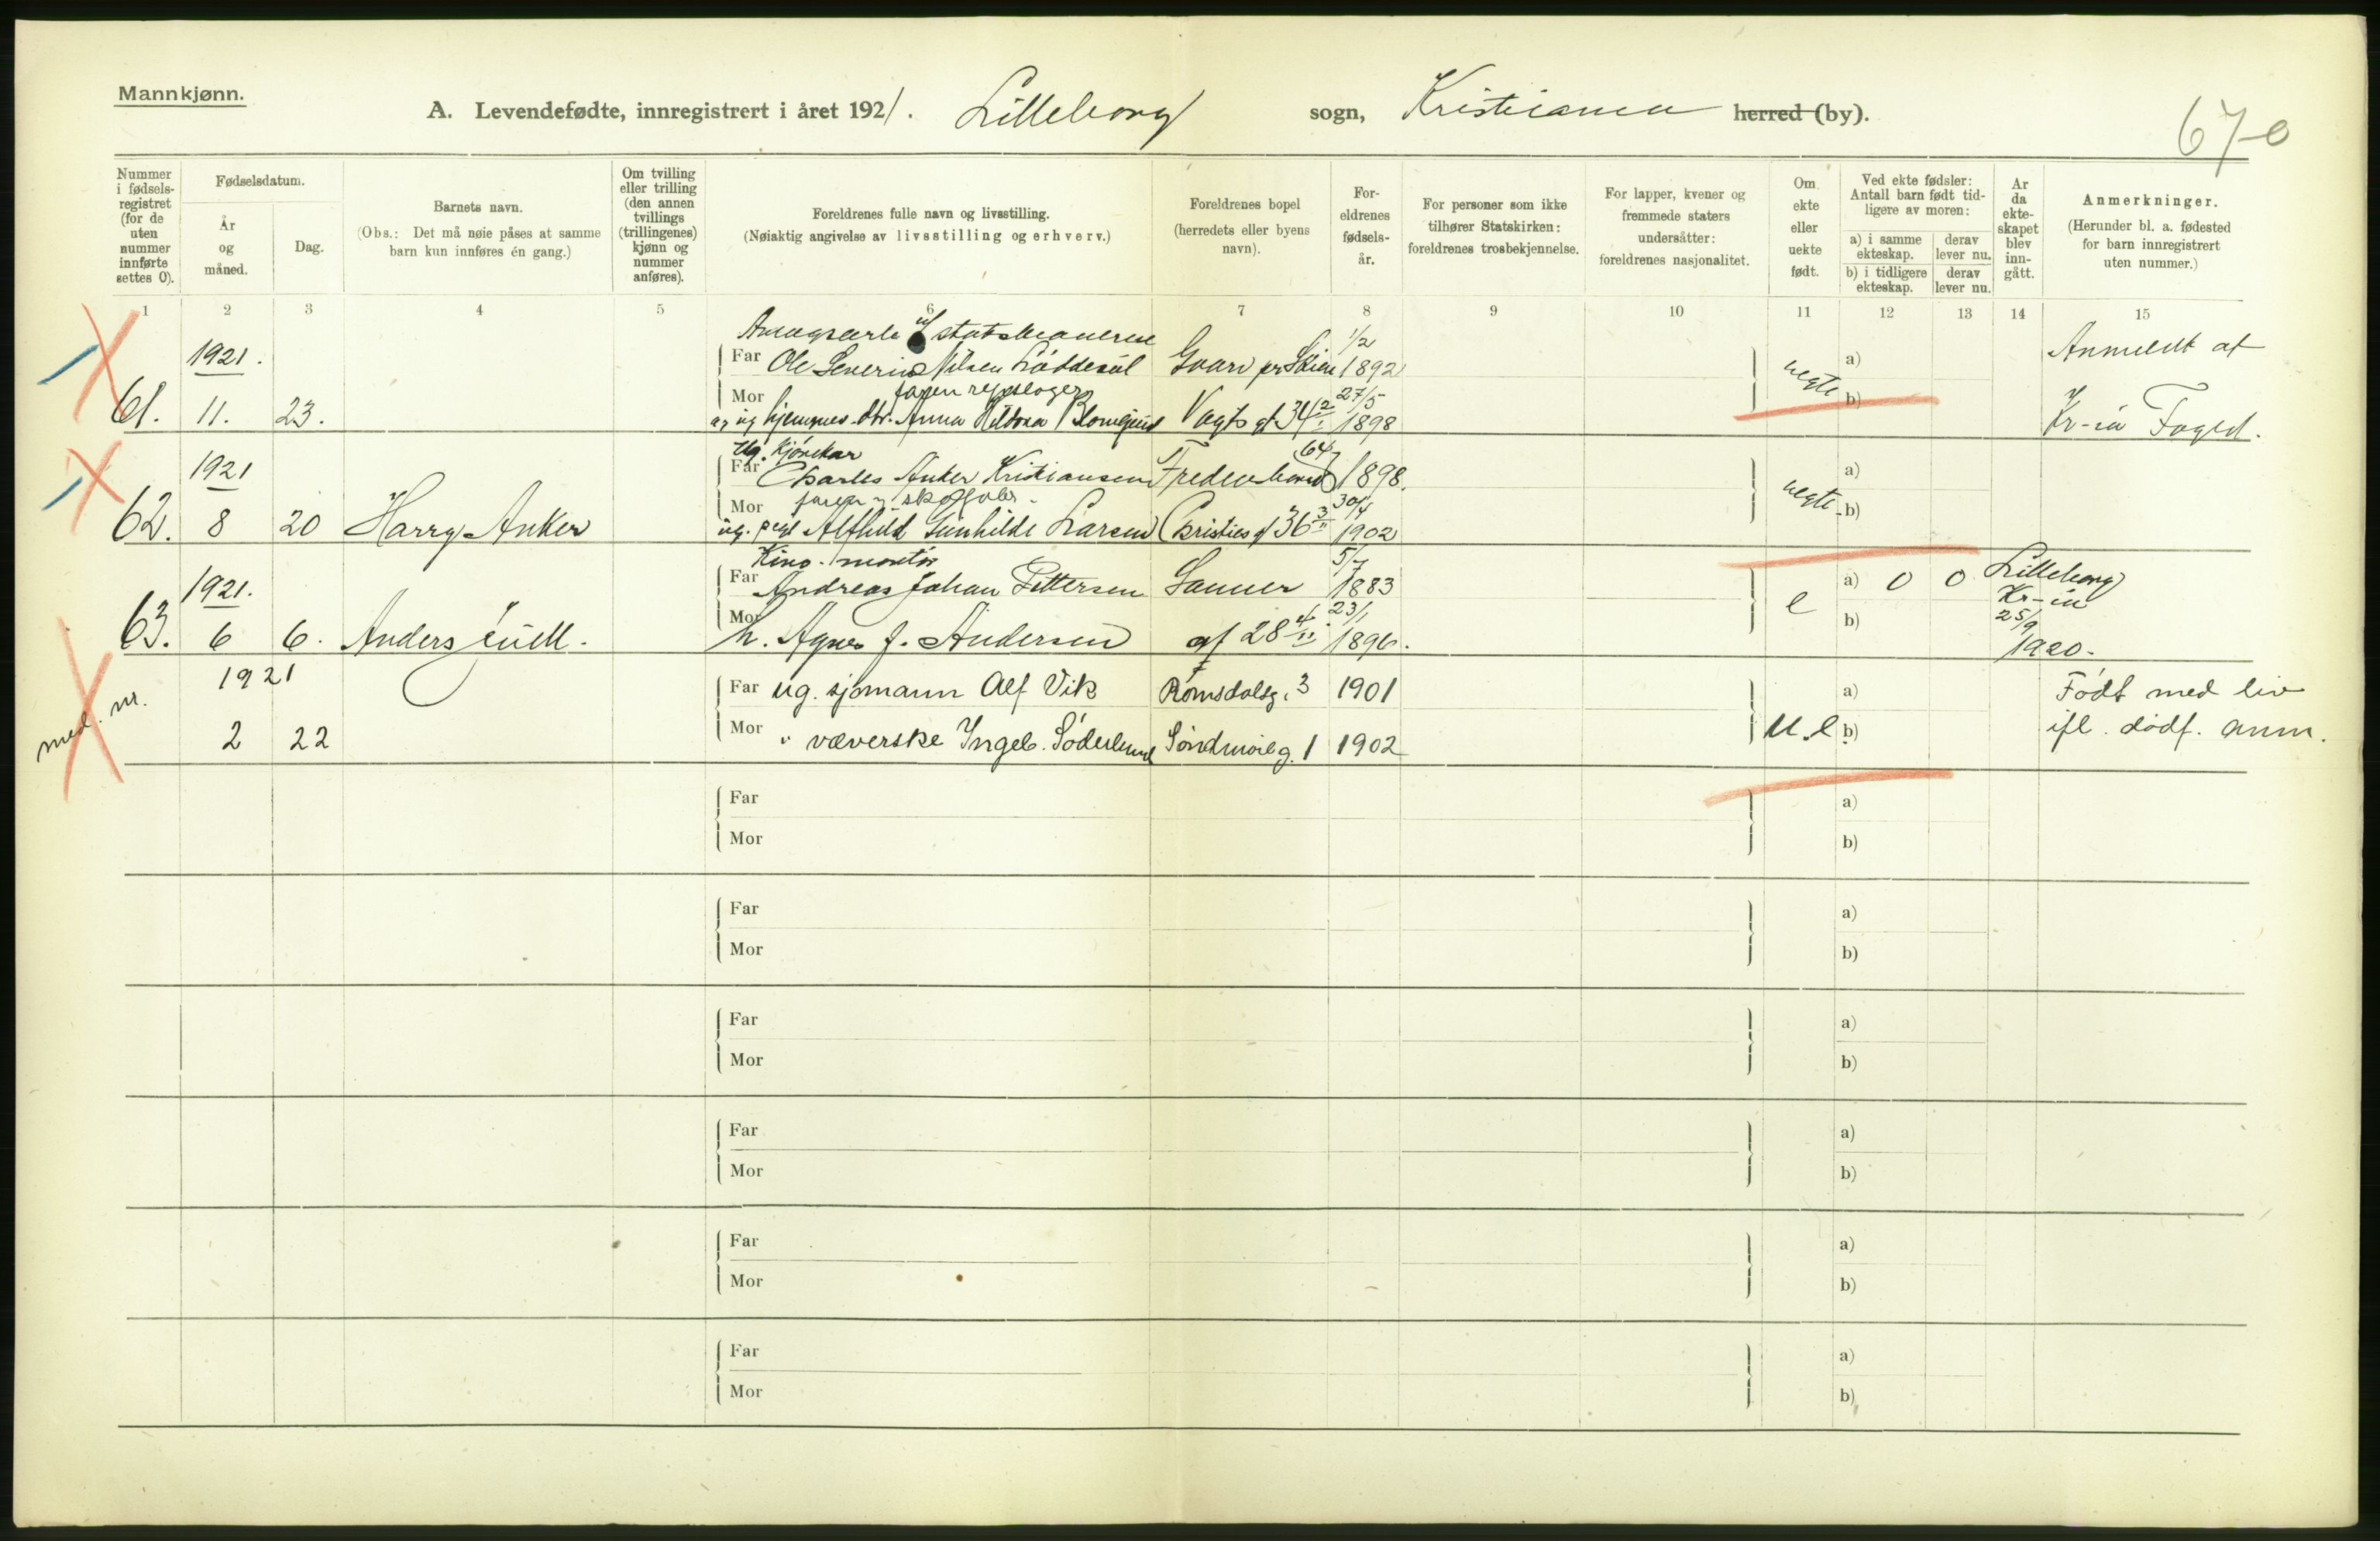 Mannkjønn.
A. Levendefødte, innregistrert i året 1921. Lilleborg sogn, Kristiania herred (by).
67-0
Nummer i fødselsregistret (for de uten nummer innførte settes 0).
Fødselsdatum.
År og måned.
Dag.
Barnets navn.
(Obs.: Det må nøie påses at samme barn kun innføres én gang.)
Om tvilling eller trilling (den annen tvillings (trillingenes) kjønn og nummer anføres).
Foreldrenes fulle navn og livsstilling.
(Nøiaktig angivelse av livsstilling og erhverv.)
Foreldrenes bopel (herredets eller byens navn).
Foreldrenes fødselsår.
For personer som ikke tilhører Statskirken: foreldrenes trosbekjennelse.
For lapper, kvener og fremmede staters undersåtter: foreldrenes nasjonalitet.
Om ekte eller uekte født.
Ved ekte fødsler: Antall barn født tidligere av moren:
a) i samme ekteskap. derav lever nu.
b) i tidligere ekteskap. derav lever nu.
Ar da ekteskapet blev inngått.
Anmerkninger.
(Herunder bl. a. fødested for barn innregistrert uten nummer.)
1 2 3 4 5 6 7 8 9 10 11 12 13 14 15
statsbanerne 1/2
1921. Far Ole Severin Nilsen Gvarv pr Skien 1892 uegte a) Anmeldt af
Mor 27/5
61. 11. 23. Anna Vogts gt 34 2/II 1898 b) Kr-ia Foged.
Ug. 64
1921 Far Charles Anker Kristiansen Fredensborgv 1898. uegte a)
Mor 30/4
62. 8 20 Harry Anker ug. Alfhild Gunhilde Larsen Christies gt 36 3/II 1902 b)
Kino-montør 5/7
1921. Far Andreas Johan Pettersen Sanner 1883 e a) 0 0 Lilleborg Kr-ia
Mor 23/1 b) 25/9
63. 6 6. Anders h. Agnes J. Andersen gt 28 4/II 1896. 1920.
1921 Far ug. sjømann Alf Vik Romsdalsg. 3 1901 a) Født med liv
med. nr. 2 22 Mor " væverske Ingeb. Söderlund Söndmöreg. 1 1902 u.e b) ifl. dödf. anm.
Far a)
Mor b)
Far a)
Mor b)
Far a)
Mor b)
Far a)
Mor b)
Far a)
Mor b)
Far a)
Mor b)